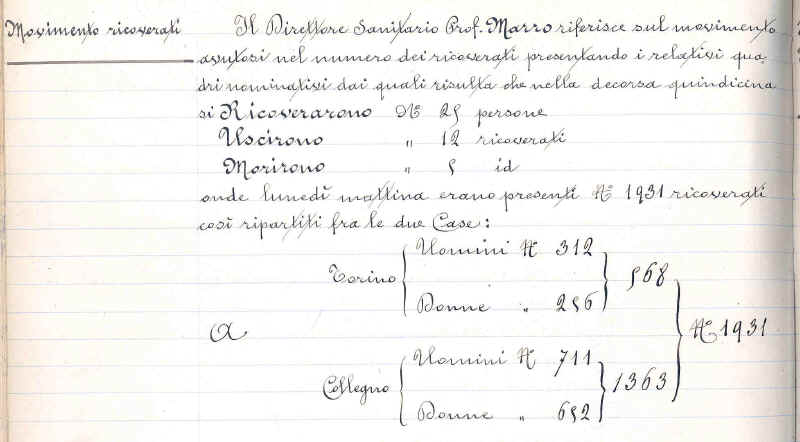 Movimento ricoverati
Il Direttore Sanitario Prof. Marro riferisce sul movimento
avutosi nel numero dei ricoverati presentando i relativi qua-
dri nominativi dai quali risulta che nella decorsa quindicina
si Ricoverarono N° 25 persone
Uscirono " 12 ricoverati
Morirono " 5 id
onde lunedì mattina erano presenti N° 1931 ricoverati
così ripartiti fra le due Case:
Uomini N° 312
Torino 568
Donne " 256
A N° 1931
Uomini N° 711
Collegno 1363
Donne " 652